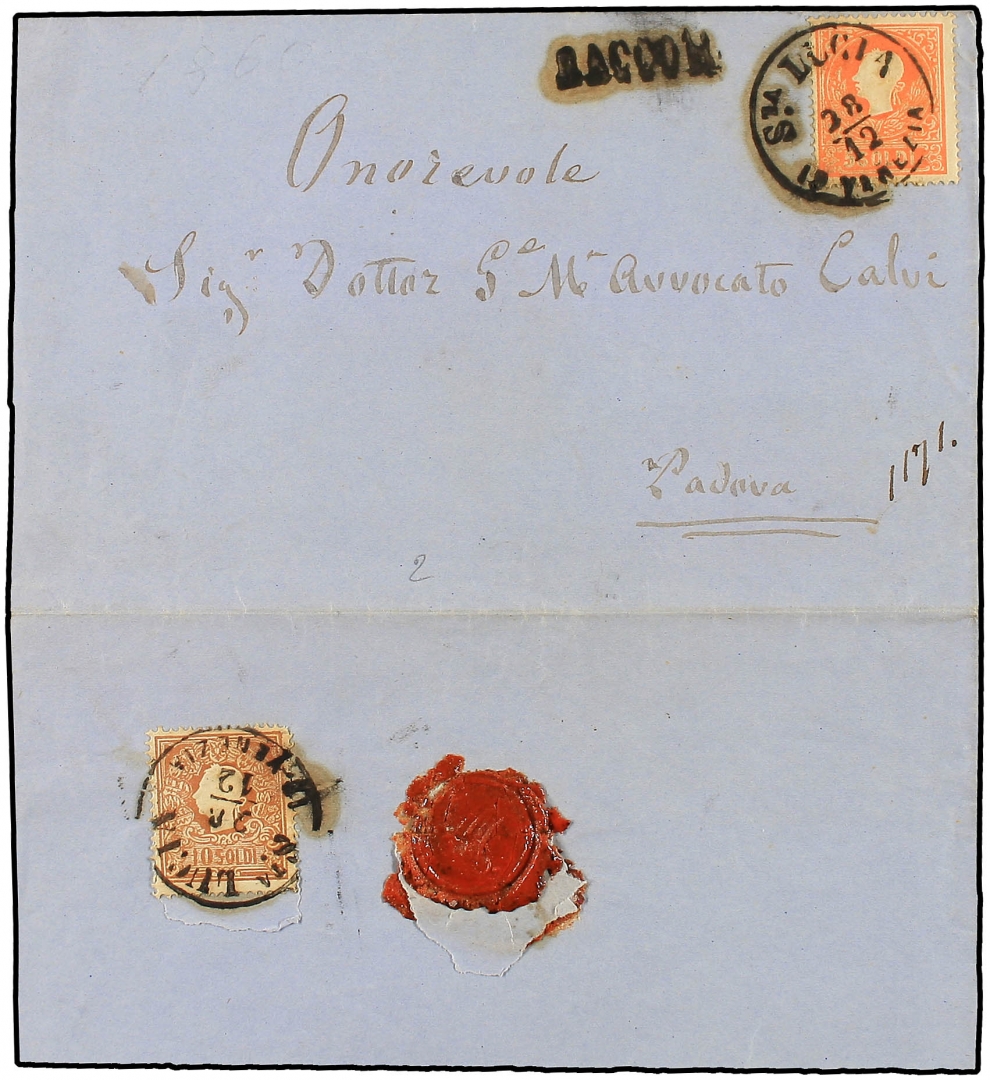 1860
RACCOM
Sta. LUCIA
28/12
IN VENEZIA
5 SOLDI
Onorevole
Sigr Dottor Ge Mr Avvocato Calvi
Padova
1171.
2
Sta. LUCIA
28/12
IN VENEZIA
10 SOLDI